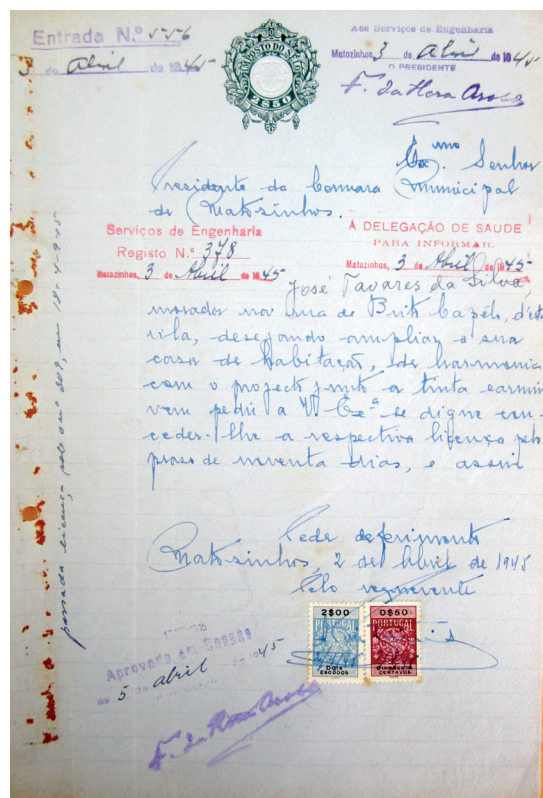 Entrada N.º 556
3 de Abril de 1945
IMPOSTO DO SELO
ESC. 2$50
Aos Serviços de Engenharia
Matozinhos, 3 de Abril de 1945
O PRESIDENTE
F. da Hora Aroso
Ex.mo Senhor
Prezidente da Camara Municipal
de Matozinhos.
Serviços de Engenharia
Registo N.º 378
Matozinhos, 3 de Abril de 1945
À DELEGAÇÃO DE SAUDE
PARA INFORMAR
Matozinhos, 3 de Abril de 1945
José Tavares da Silva,
morador na rua de Brito Capêlo, d'esta
vila, desejando ampliar a sua
casa de habitação, de harmonia
com o projecto junto a tinta carmin
vem pedir a V. Ex.ª se digne con-
ceder-lhe a respectiva licença pelo
prazo de noventa dias, e assim
Pede deferimento
Matozinhos, 2 de Abril de 1945
Pelo requerente
2$00
PORTUGAL
DOIS
ESCUDOS
0$50
PORTUGAL
CINQUENTA
CENTAVOS
Aprovado em Sessão
de 5 de abril de 1945
F. da Hora Aroso
passada licença, sob o nº 209, em 18-4-945